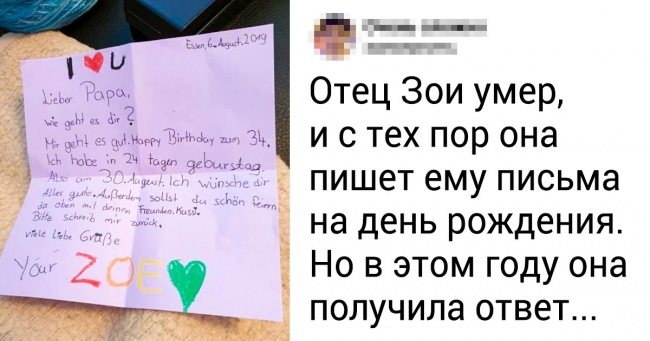 Essen, 6. August, 2019
I ❤ U
Lieber Papa,
wie geht es dir?
Mir geht es gut. Happy Birthday zum 34.
Ich habe in 24 tagen geburstag.
Also am 30. August. Ich wünsche dir
Alles gute. Außerdem sollst du schön feiern
da oben mit deinen Freunden. Kuss.
Bitte schreib mir zurück.
viele liebe Grüße
Your ZOE
Отец Зои умер,
и с тех пор она
пишет ему письма
на день рождения.
Но в этом году она
получила ответ...